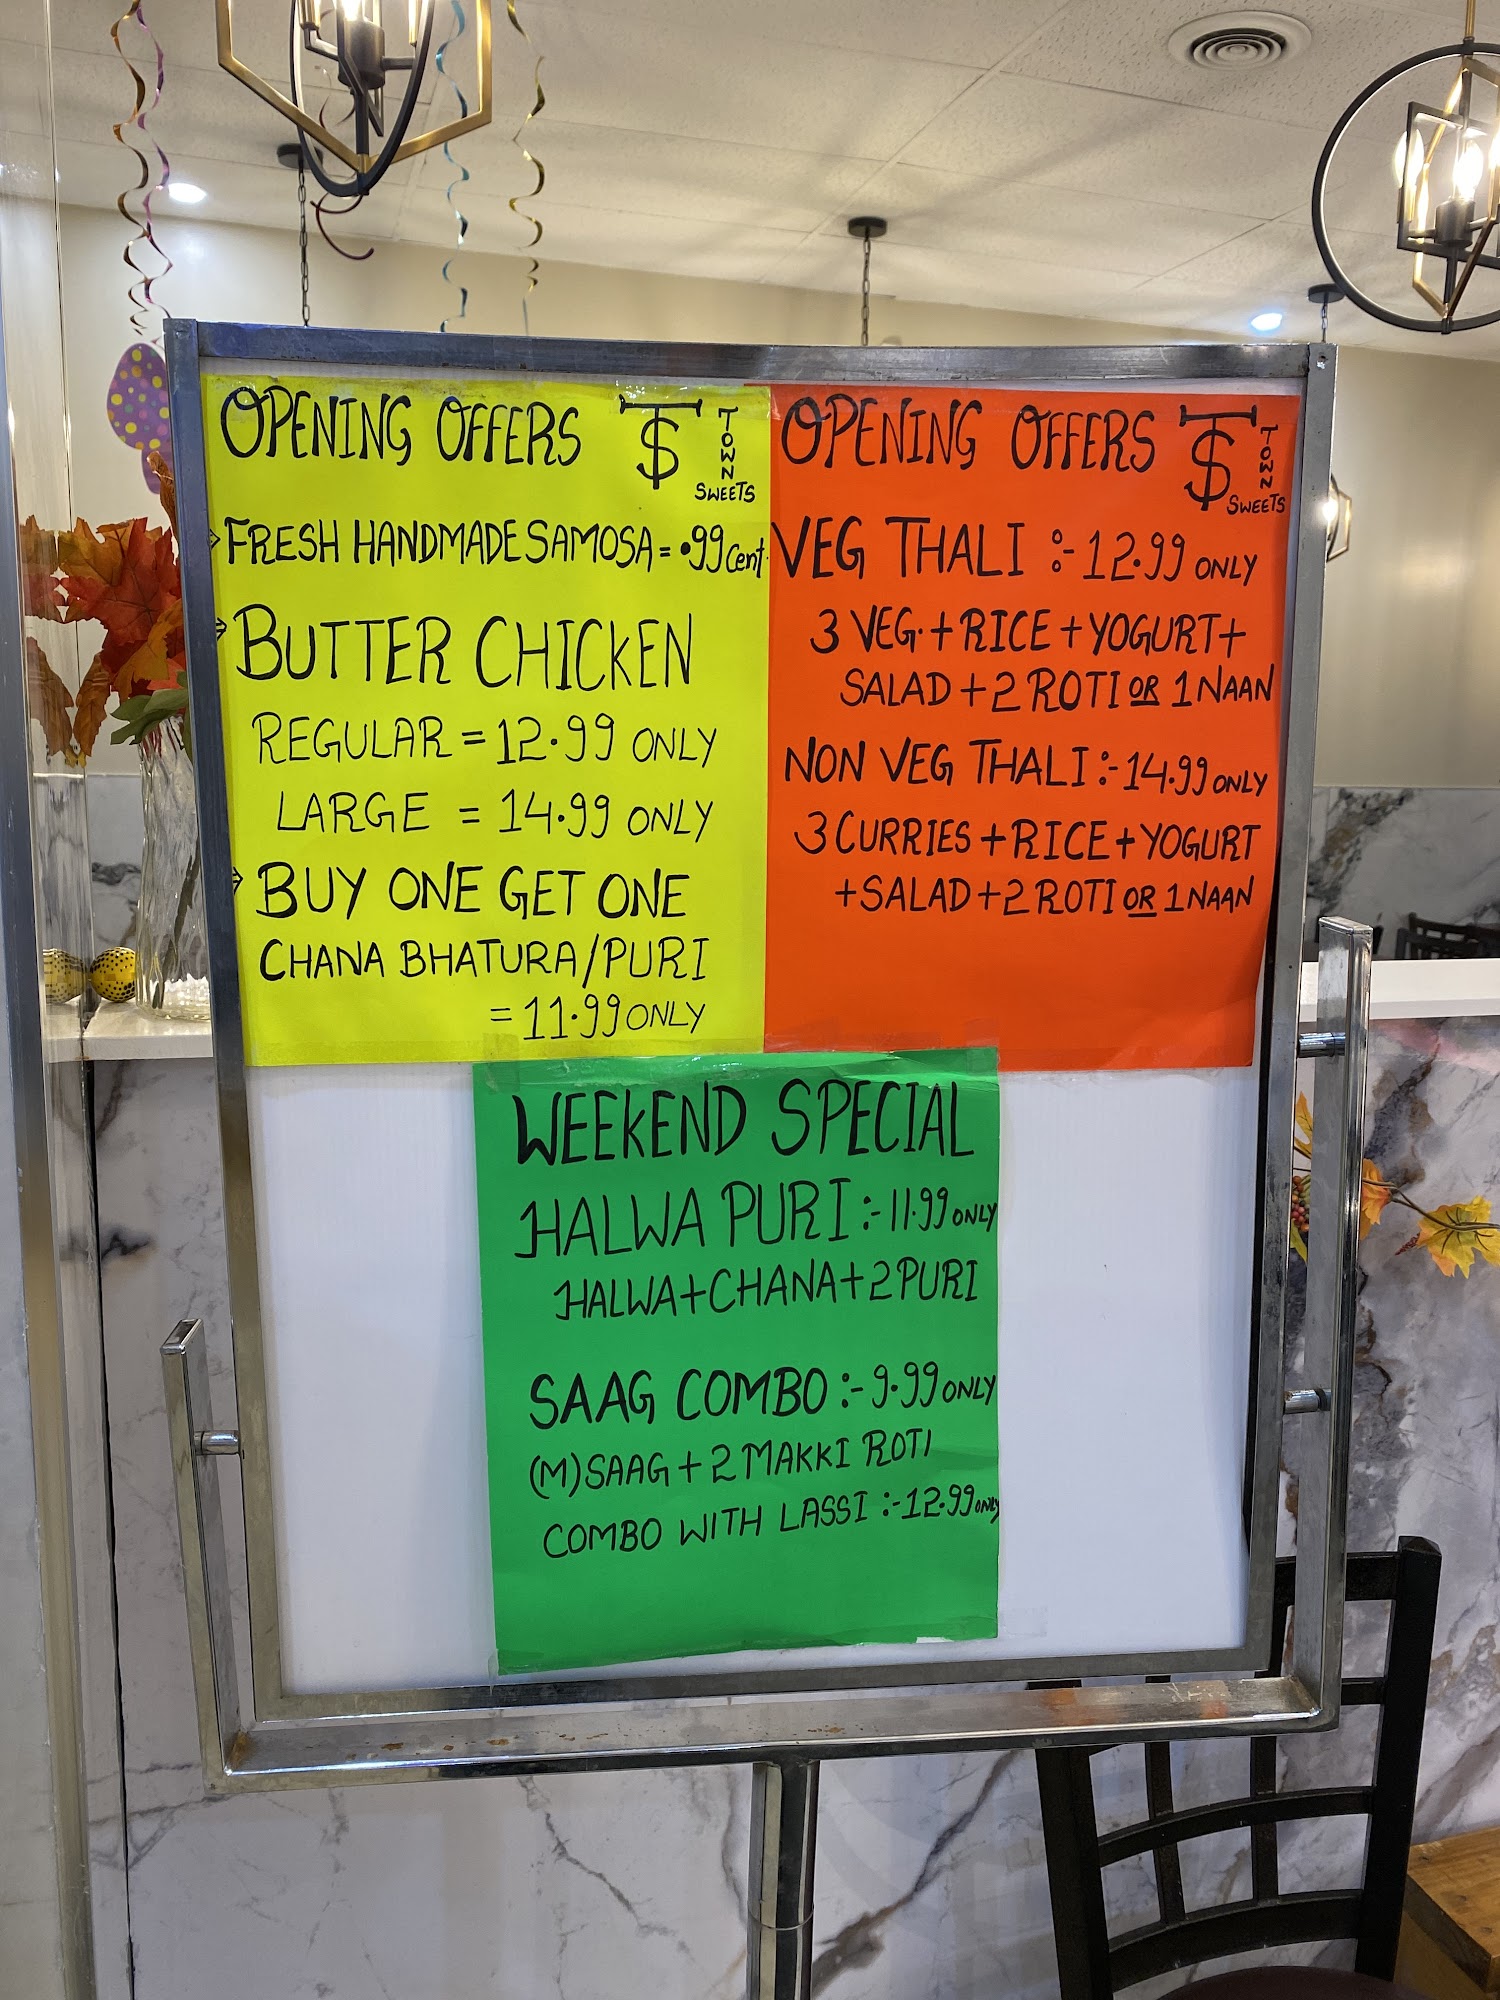 OPENING OFFERS
TS TOWN
SWEETS
FRESH HANDMADE SAMOSA = .99 Cent
BUTTER CHICKEN
REGULAR = 12.99 ONLY
LARGE = 14.99 ONLY
BUY ONE GET ONE
CHANA BHATURA/PURI
= 11.99 ONLY
OPENING OFFERS
TS TOWN
SWEETS
VEG THALI :- 12.99 ONLY
3 VEG. + RICE + YOGURT +
SALAD + 2 ROTI OR 1 NAAN
NON VEG THALI :- 14.99 ONLY
3 CURRIES + RICE + YOGURT
+ SALAD + 2 ROTI OR 1 NAAN
WEEKEND SPECIAL
HALWA PURI :- 11.99 ONLY
HALWA + CHANA + 2 PURI
SAAG COMBO :- 9.99 ONLY
(M) SAAG + 2 MAKKI ROTI
COMBO WITH LASSI :- 12.99 ONLY